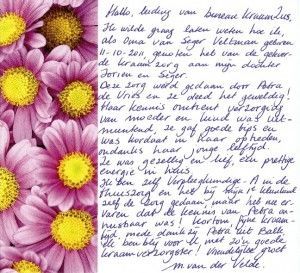 Hallo, leiding van bureau kraamlus,
Ik wilde graag laten weten hoe ik,
als oma van Seger Veltman geboren
11-10-2011 genoten heb van de
kraamzorg aan mijn dochter
Jorien en Seger.
Deze zorg werd gedaan door Petra
de Vries en ze deed het geweldig!
Haar kennis omtrent verzorging
van moeder en kind was uit-
muntend, ze gaf goede tips en
was kordaat in haar optreden,
ondanks haar jonge leeftijd.
Ze was gezellig en lief, een prettige
energie in huis.
Ik ben zelf Verpleegkundige-A in de
Thuiszorg en heb bij mijn 1e kleinkind
zelf de zorg gedaan, maar heb nu er-
varen dat de kennis van Petra on-
misbaar was! Kortom fijne kraam-
tijd, mede dankzij Petra uit Balk.
Ik ben blij voor u met zo'n goede
kraamverzorgster! Vriendelijke groet
M van der Velde.